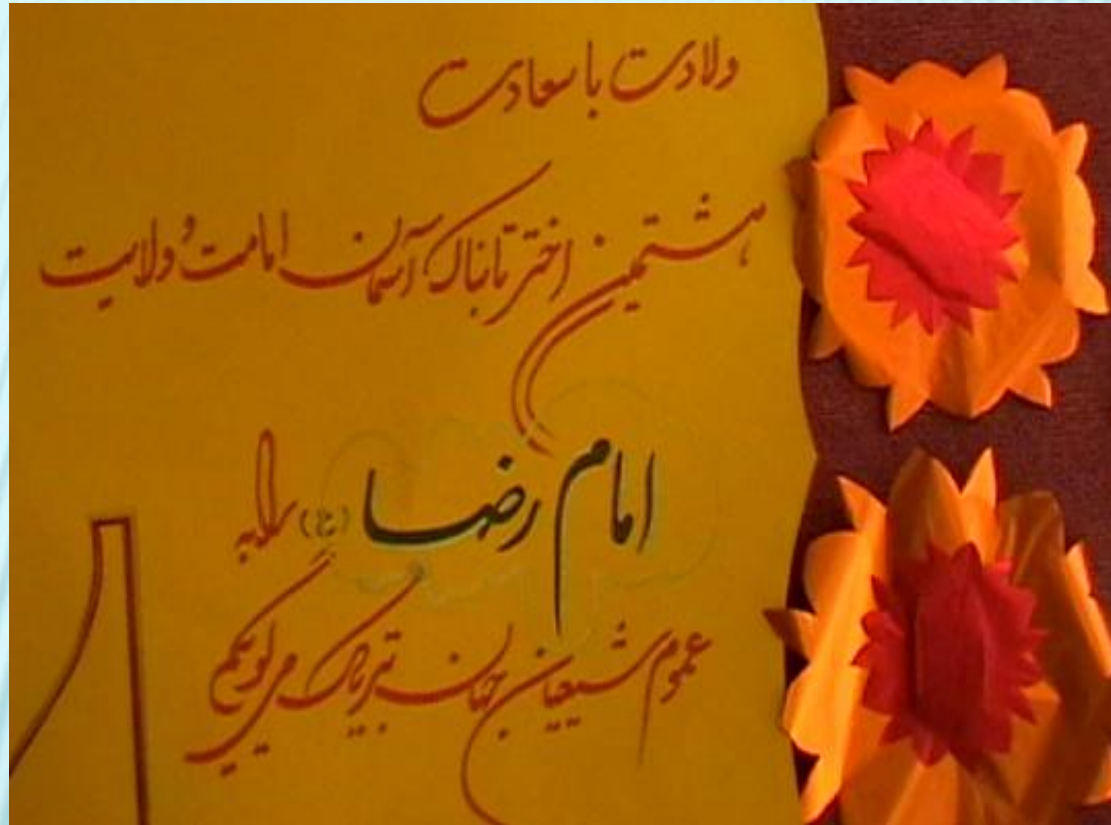 ولادت با سعادت
هشتمین اختر تابناک آسمان امامت و ولایت
امام رضا (ع) را به
عموم شیعیان جهان تبریک می گوییم